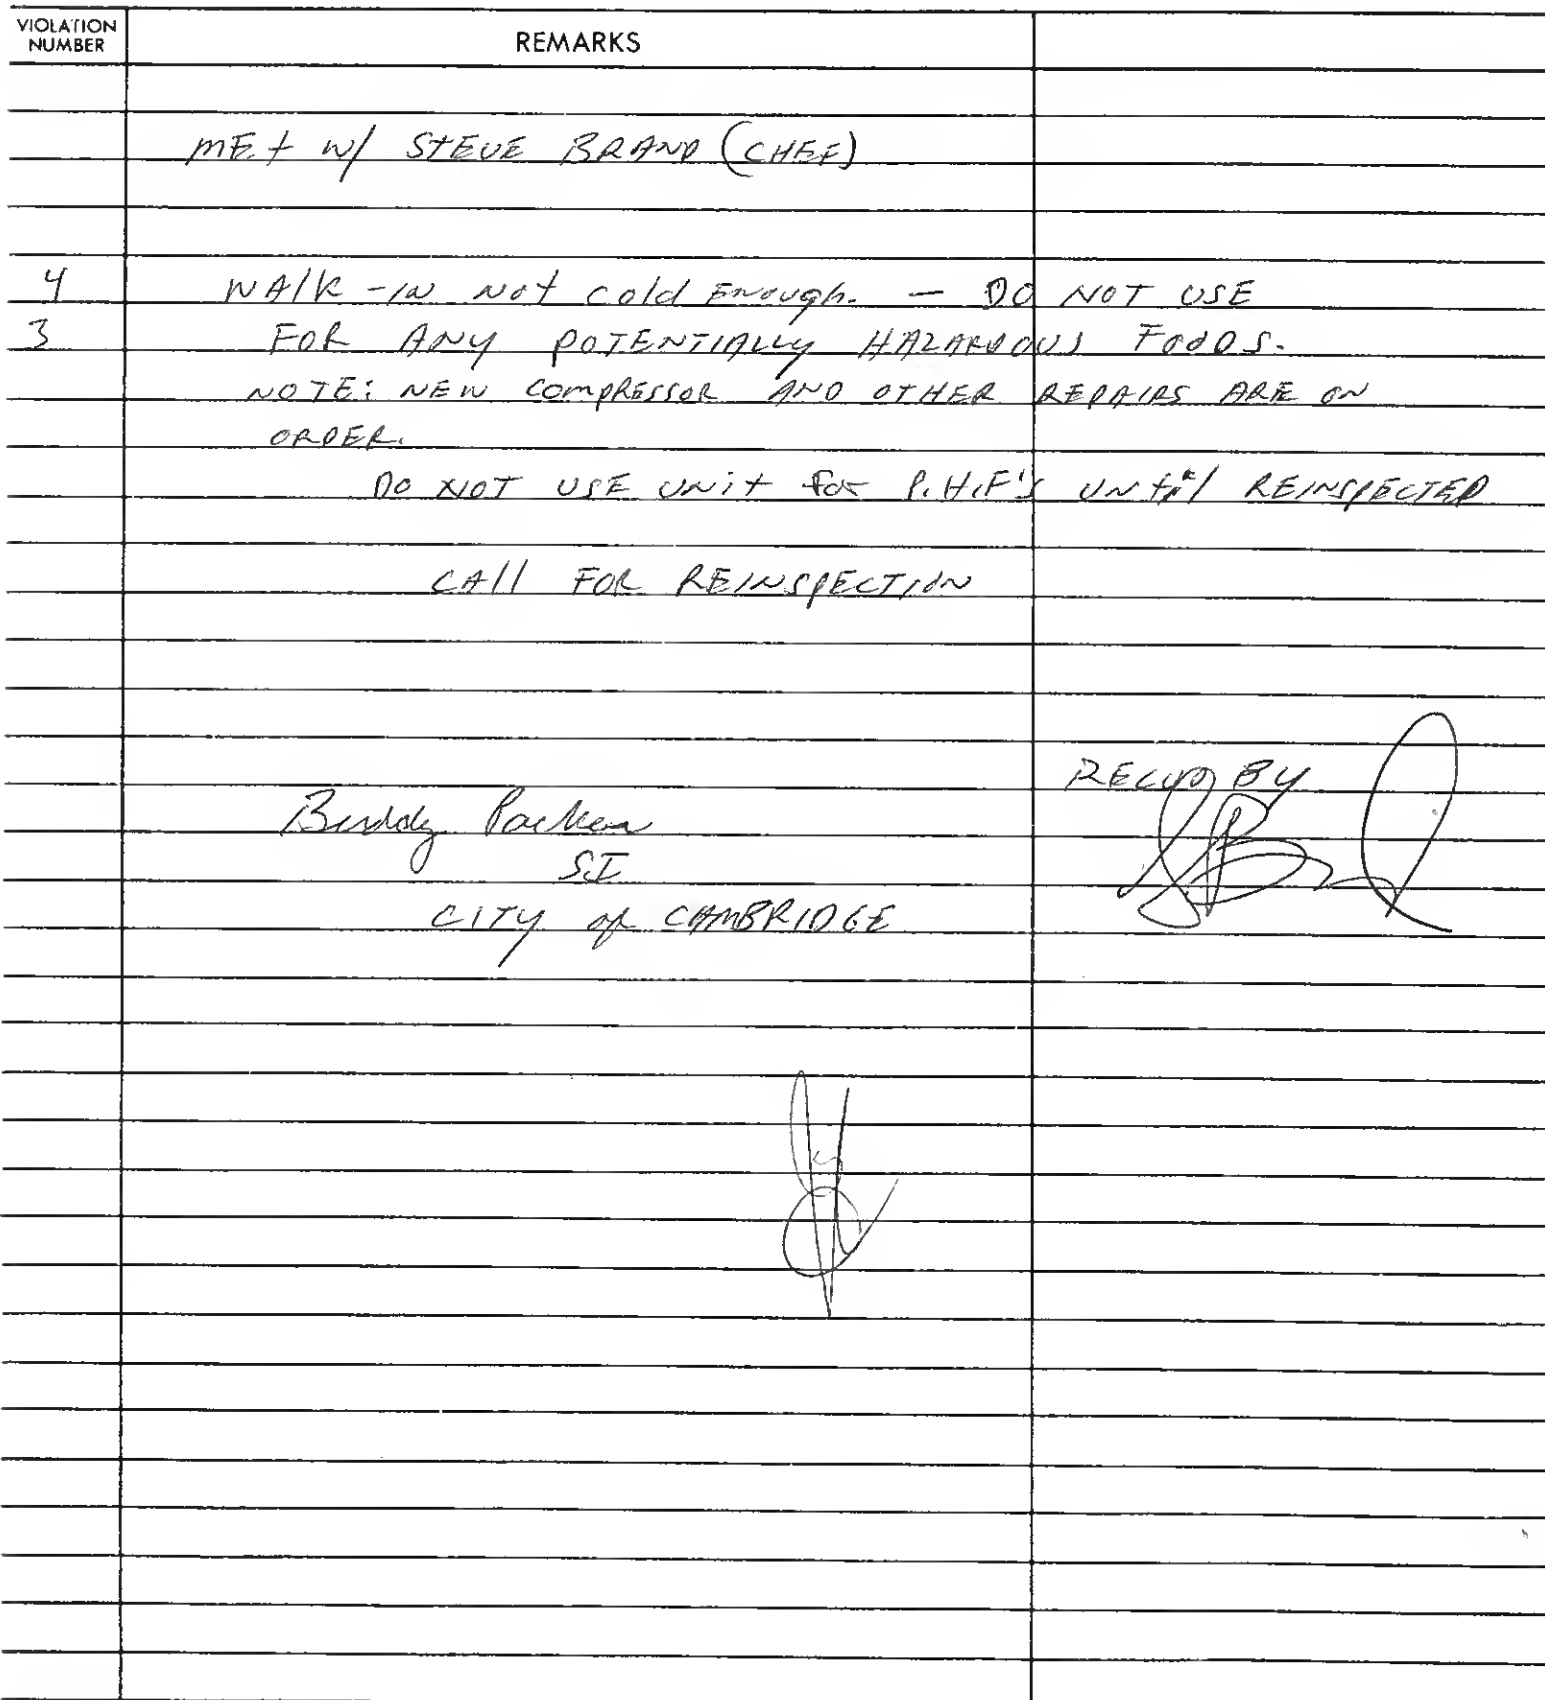 VIOLATION NUMBER REMARKS
MEt w/ STEVE BRAND (CHEF)
4 WAlk-IN Not cold Enough. — DO NOT USE
3 FOR ANY POTENTIALLY HAZARDOUS FOODS.
NOTE: NEW COMPRESSOR AND OTHER REPAIRS ARE ON
ORDER.
DO NOT USE UNit for P.H.F's UNtil REINSPECTED
CAll FOR REINSPECTION
RECVD BY
Buddy Packer
S.I
CITY of CAMBRIDGE